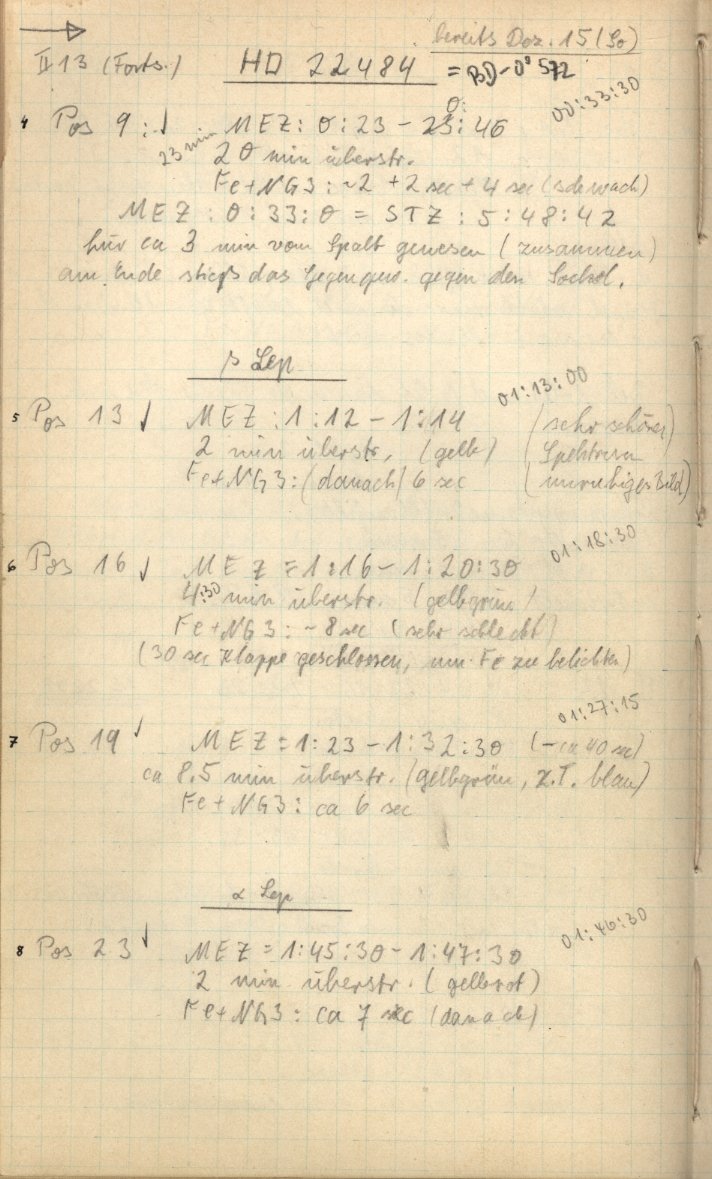 bereits Doz. 15 (So)
II 13 (Forts.) HD 22484 = BD-0° 572
00:33:30
0:
4 Pos 9: √ MEZ: 0:23 - 23:46
23 min 20 min überstr.
Fe+NG3: ~2 + 2 sec + 4 sec (schwach)
MEZ: 0:33:0 = STZ: 5:48:42
Nur ca 3 min vom Spalt gewesen (zusammen)
am Ende stieß das Gegengew. gegen den Sockel.
β Lep
01:13:00
5 Pos 13 √ MEZ: 1:12 - 1:14 (sehr schönes)
2 min überstr. (gelb) (Spektrum
Fe+NG3: (danach) 6 sec (unruhiges Bild)
01:18:30
6 Pos 16 √ MEZ = 1:16 - 1:20:30
4:30 min überstr. (gelbgrün)
Fe+NG3: ~8 sec (sehr schlecht)
(30 sec Klappe geschlossen, um Fe zu belichten)
01:27:15
7 Pos 19 √ MEZ = 1:23 - 1:32:30 (- ca 40 sec)
ca 8.5 min überstr. (gelbgrün, z.T. blau)
Fe+NG3: ca 6 sec
α Lep
01:46:30
8 Pos 23 √ MEZ = 1:45:30 - 1:47:30
2 min überstr. (gelbrot)
Fe+NG3: ca 7 sec (danach)